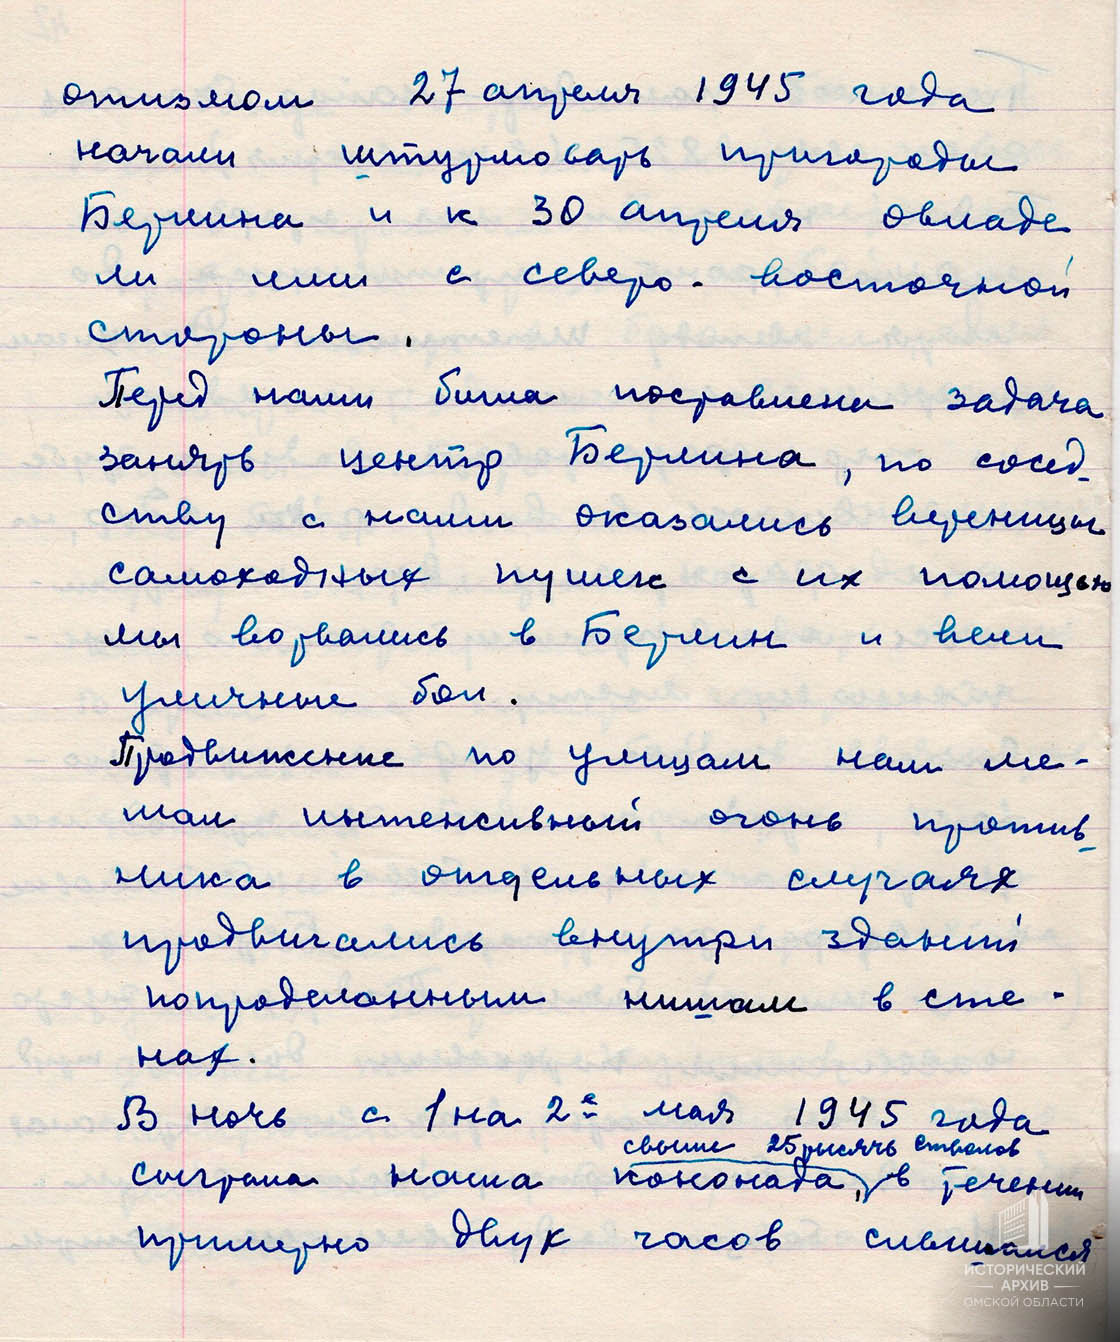 отизмом 27 апреля 1945 года
начали штурмовать пригороды
Берлина и к 30 апреля овладе
ли ими с северо-восточной
стороны.
Перед нами была поставлена задача
занять центр Берлина, по сосед-
ству с нами оказались вереницы
самоходных пушек с их помощью
мы ворвались в Берлин и вели
уличные бои.
Продвижение по улицам нам ме-
шал интенсивный огонь против-
ника в отдельных случаях
продвигались внутри зданий
попроделанным нишам в сте-
нах.
В ночь с 1 на 2е мая 1945 года
свыше 25 тысячь стволов
сыграла наша кононада, в течении
примерно двух часов слышался
ИСТОРИЧЕСКИЙ
АРХИВ
ОМСКОЙ ОБЛАСТИ